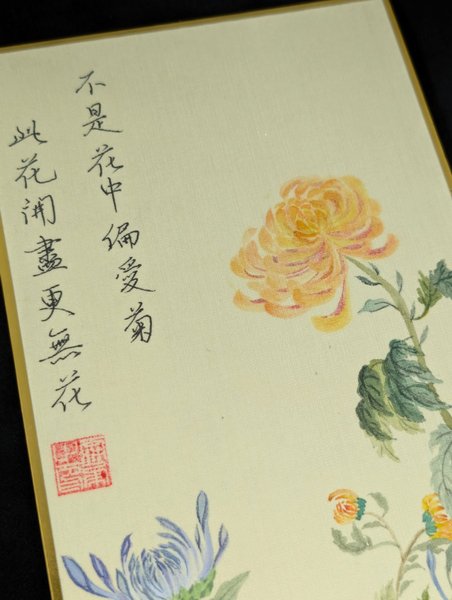 不是花中偏愛菊
此花開盡更無花